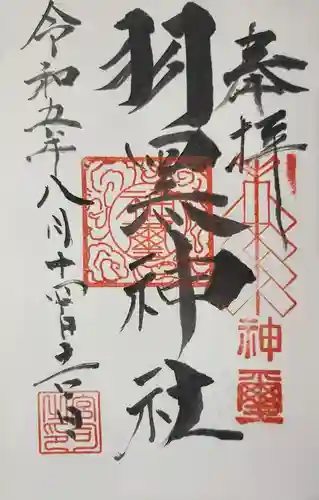 奉拝
神璽
羽黒神社
令和五年八月十四日